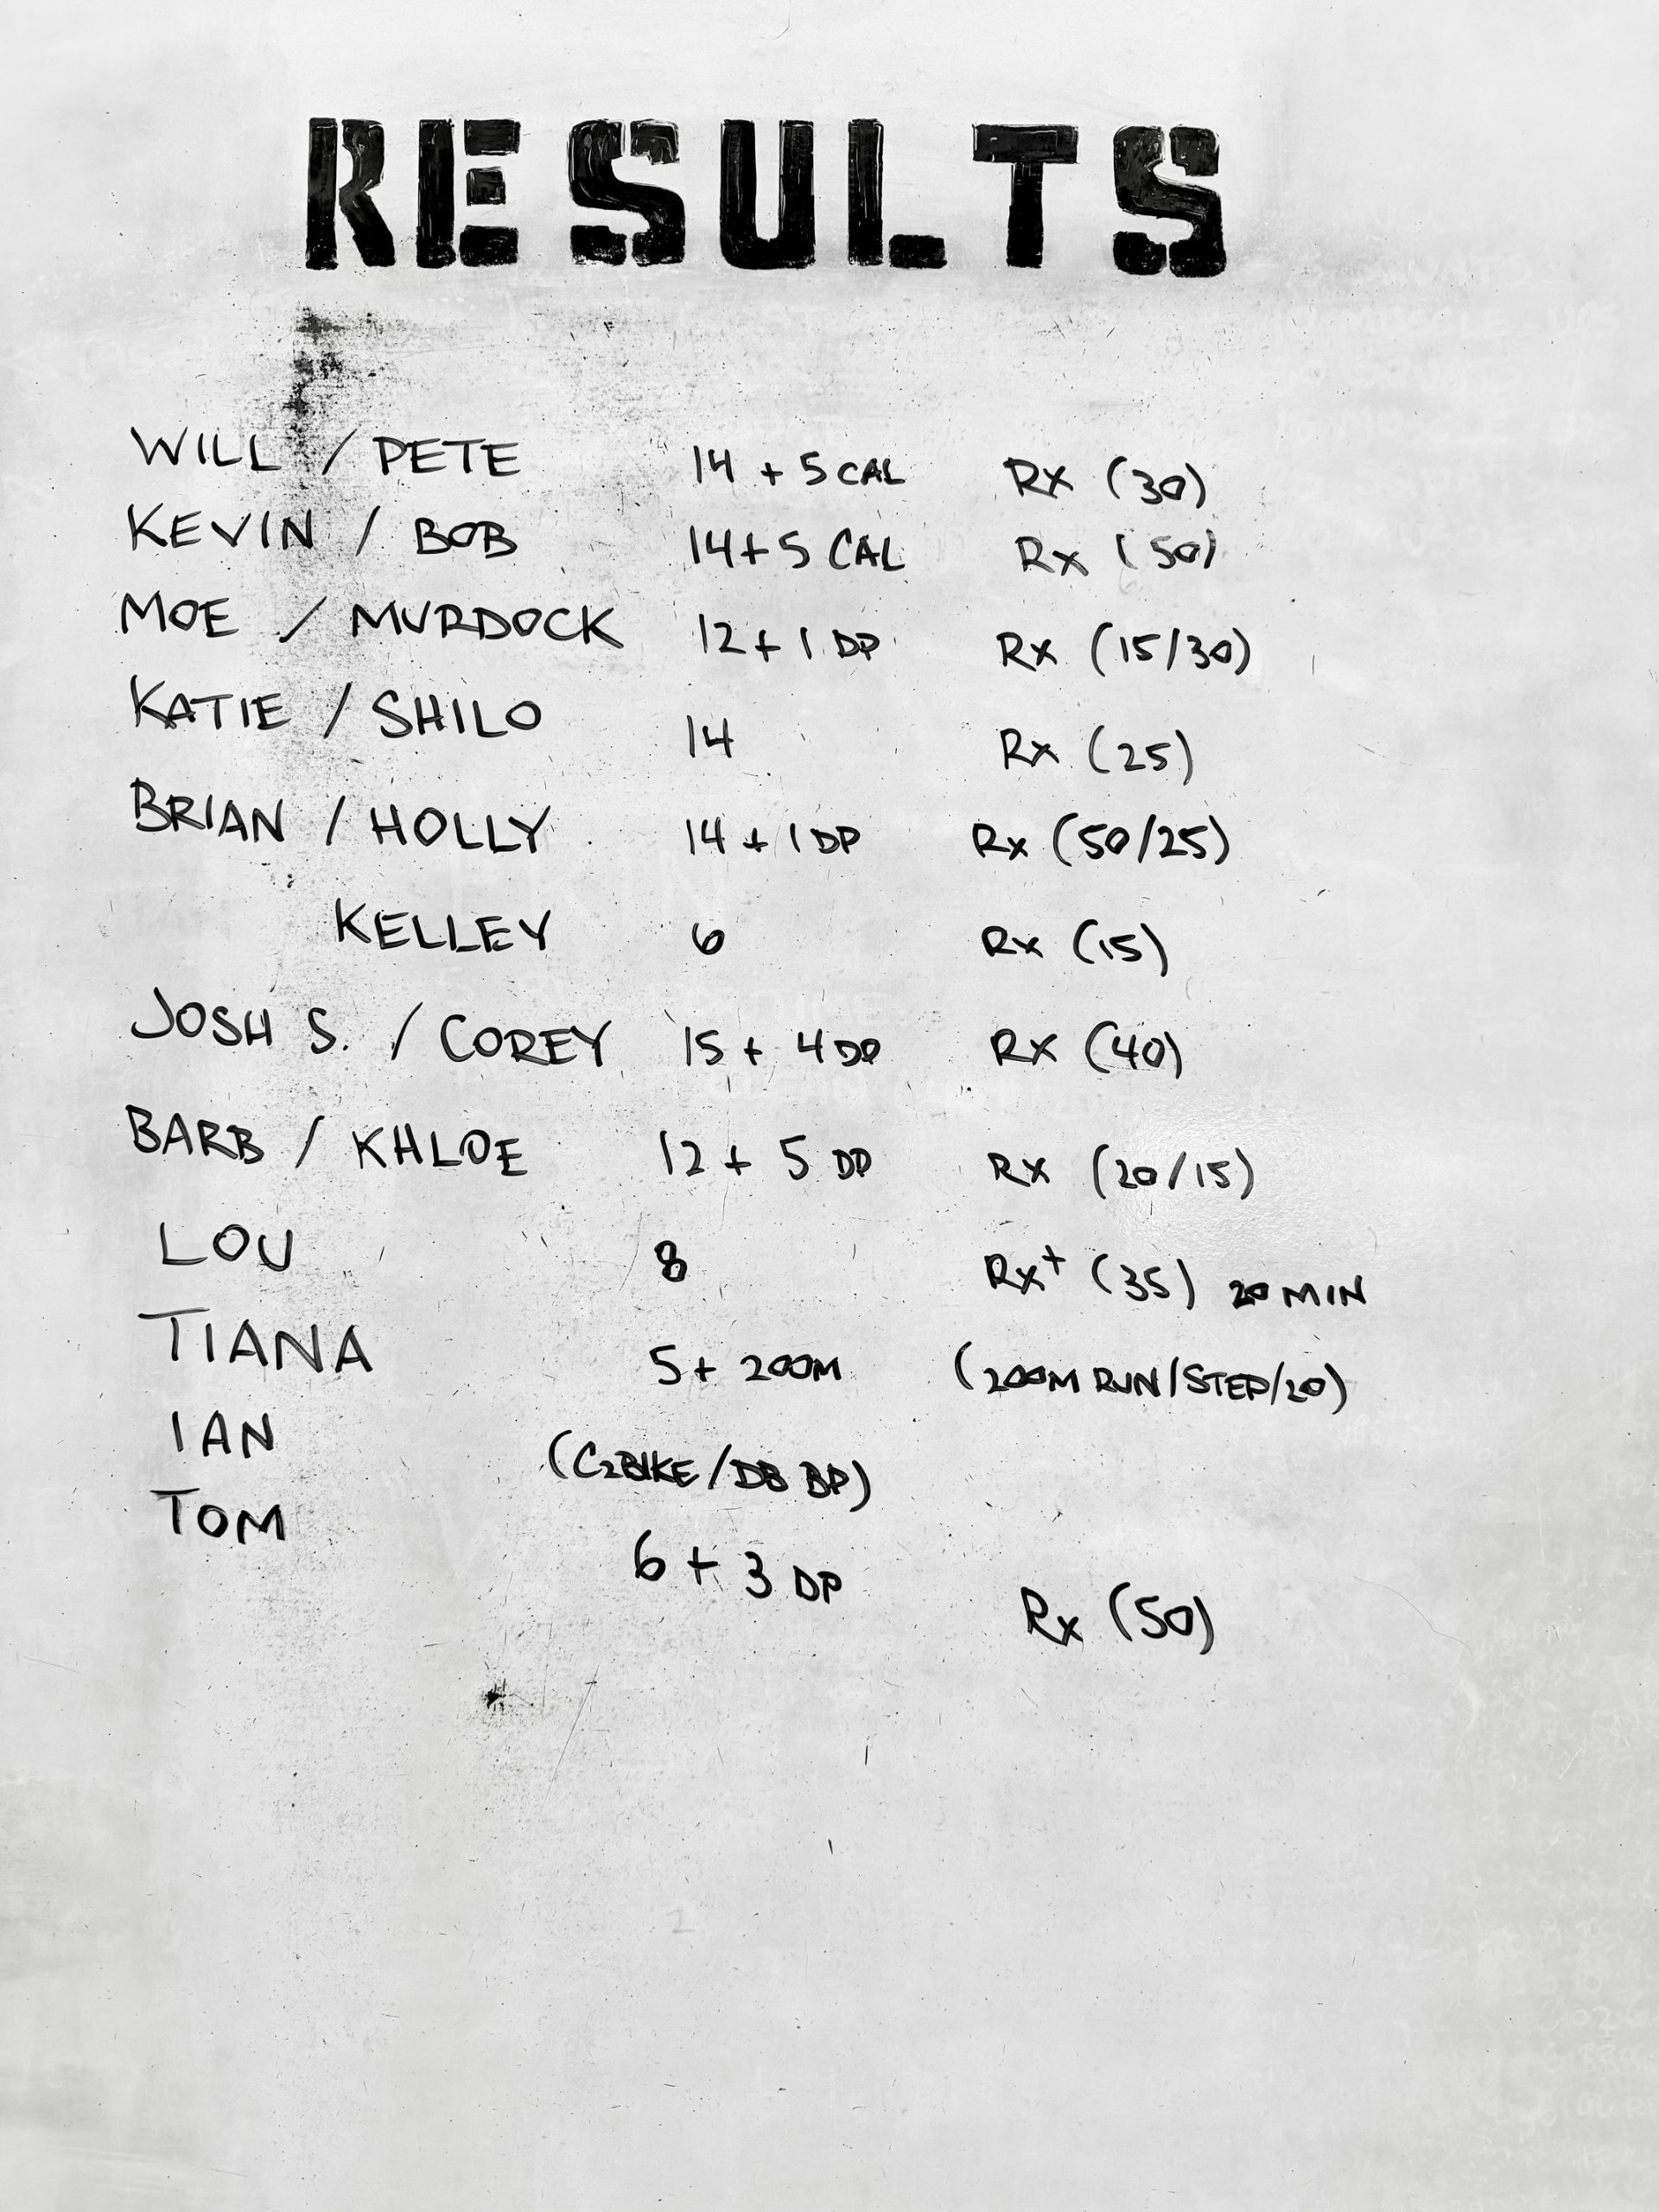 RESULTS
WILL / PETE 14 + 5 CAL Rx (30)
KEVIN / BOB 14+5 CAL Rx (50)
MOE / MURDOCK 12 + 1 DP Rx (15/30)
KATIE / SHILO 14 Rx (25)
BRIAN / HOLLY 14 + 1 DP Rx (50/25)
KELLEY 6 Rx (15)
JOSH S. / COREY 15 + 4 DP Rx (40)
BARB / KHLOE 12 + 5 DP Rx (20/15)
LOU 8 Rx+ (35) 20 MIN
TIANA 5 + 200M (200M RUN/STEP/20)
IAN (C2BIKE/DB BP)
TOM 6 + 3 DP Rx (50)